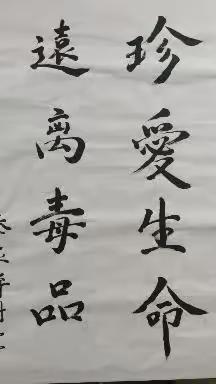 珍愛生命
遠离毒品